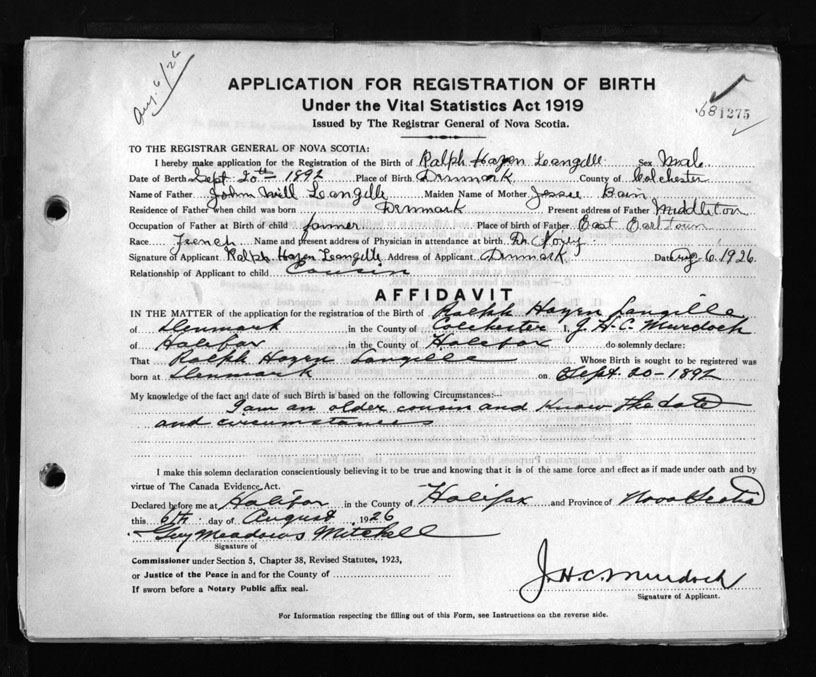 Aug. 6/26
APPLICATION FOR REGISTRATION OF BIRTH
Under the Vital Statistics Act 1919
681275
Issued by The Registrar General of Nova Scotia.
TO THE REGISTRAR GENERAL OF NOVA SCOTIA:
I hereby make application for the Registration of the Birth of Ralph Hazen Langille Sex Male
Date of Birth Sept 20th 1892 Place of Birth Denmark County of Colchester
Name of Father John Langille Maiden Name of Mother Jessie Bain
Residence of Father when child was born Denmark Present address of Father Middleton
Occupation of Father at Birth of child farmer Place of birth of Father East Earltown
Race French Name and present address of Physician in attendance at birth Dr.
Signature of Applicant Ralph Hazen Langille Address of Applicant Denmark Date Aug 6. 1926.
Relationship of Applicant to child Cousin
AFFIDAVIT
IN THE MATTER of the application for the registration of the Birth of Ralph Hazen Langille
of Denmark in the County of Colchester I, J. H. C. Murdoch
of Halifax in the County of Halifax do solemnly declare:
That Ralph Hazen Langille Whose Birth is sought to be registered was
born at Denmark on Sept. 20 - 1892
My knowledge of the fact and date of such Birth is based on the following Circumstances:--
I am an older cousin and know the date
and circumstances
I make this solemn declaration conscientiously believing it to be true and knowing that it is of the same force and effect as if made under oath and by
virtue of The Canada Evidence Act.
Declared before me at Halifax in the County of Halifax and Province of Nova Scotia
this 6th day of August 1926
Guy Meadows Mitchell
Signature of
Commissioner under Section 5, Chapter 38, Revised Statutes, 1923,
or Justice of the Peace in and for the County of
If sworn before a Notary Public affix seal.
J. H. C. Murdoch
Signature of Applicant.
For Information respecting the filling out of this Form, see Instructions on the reverse side.